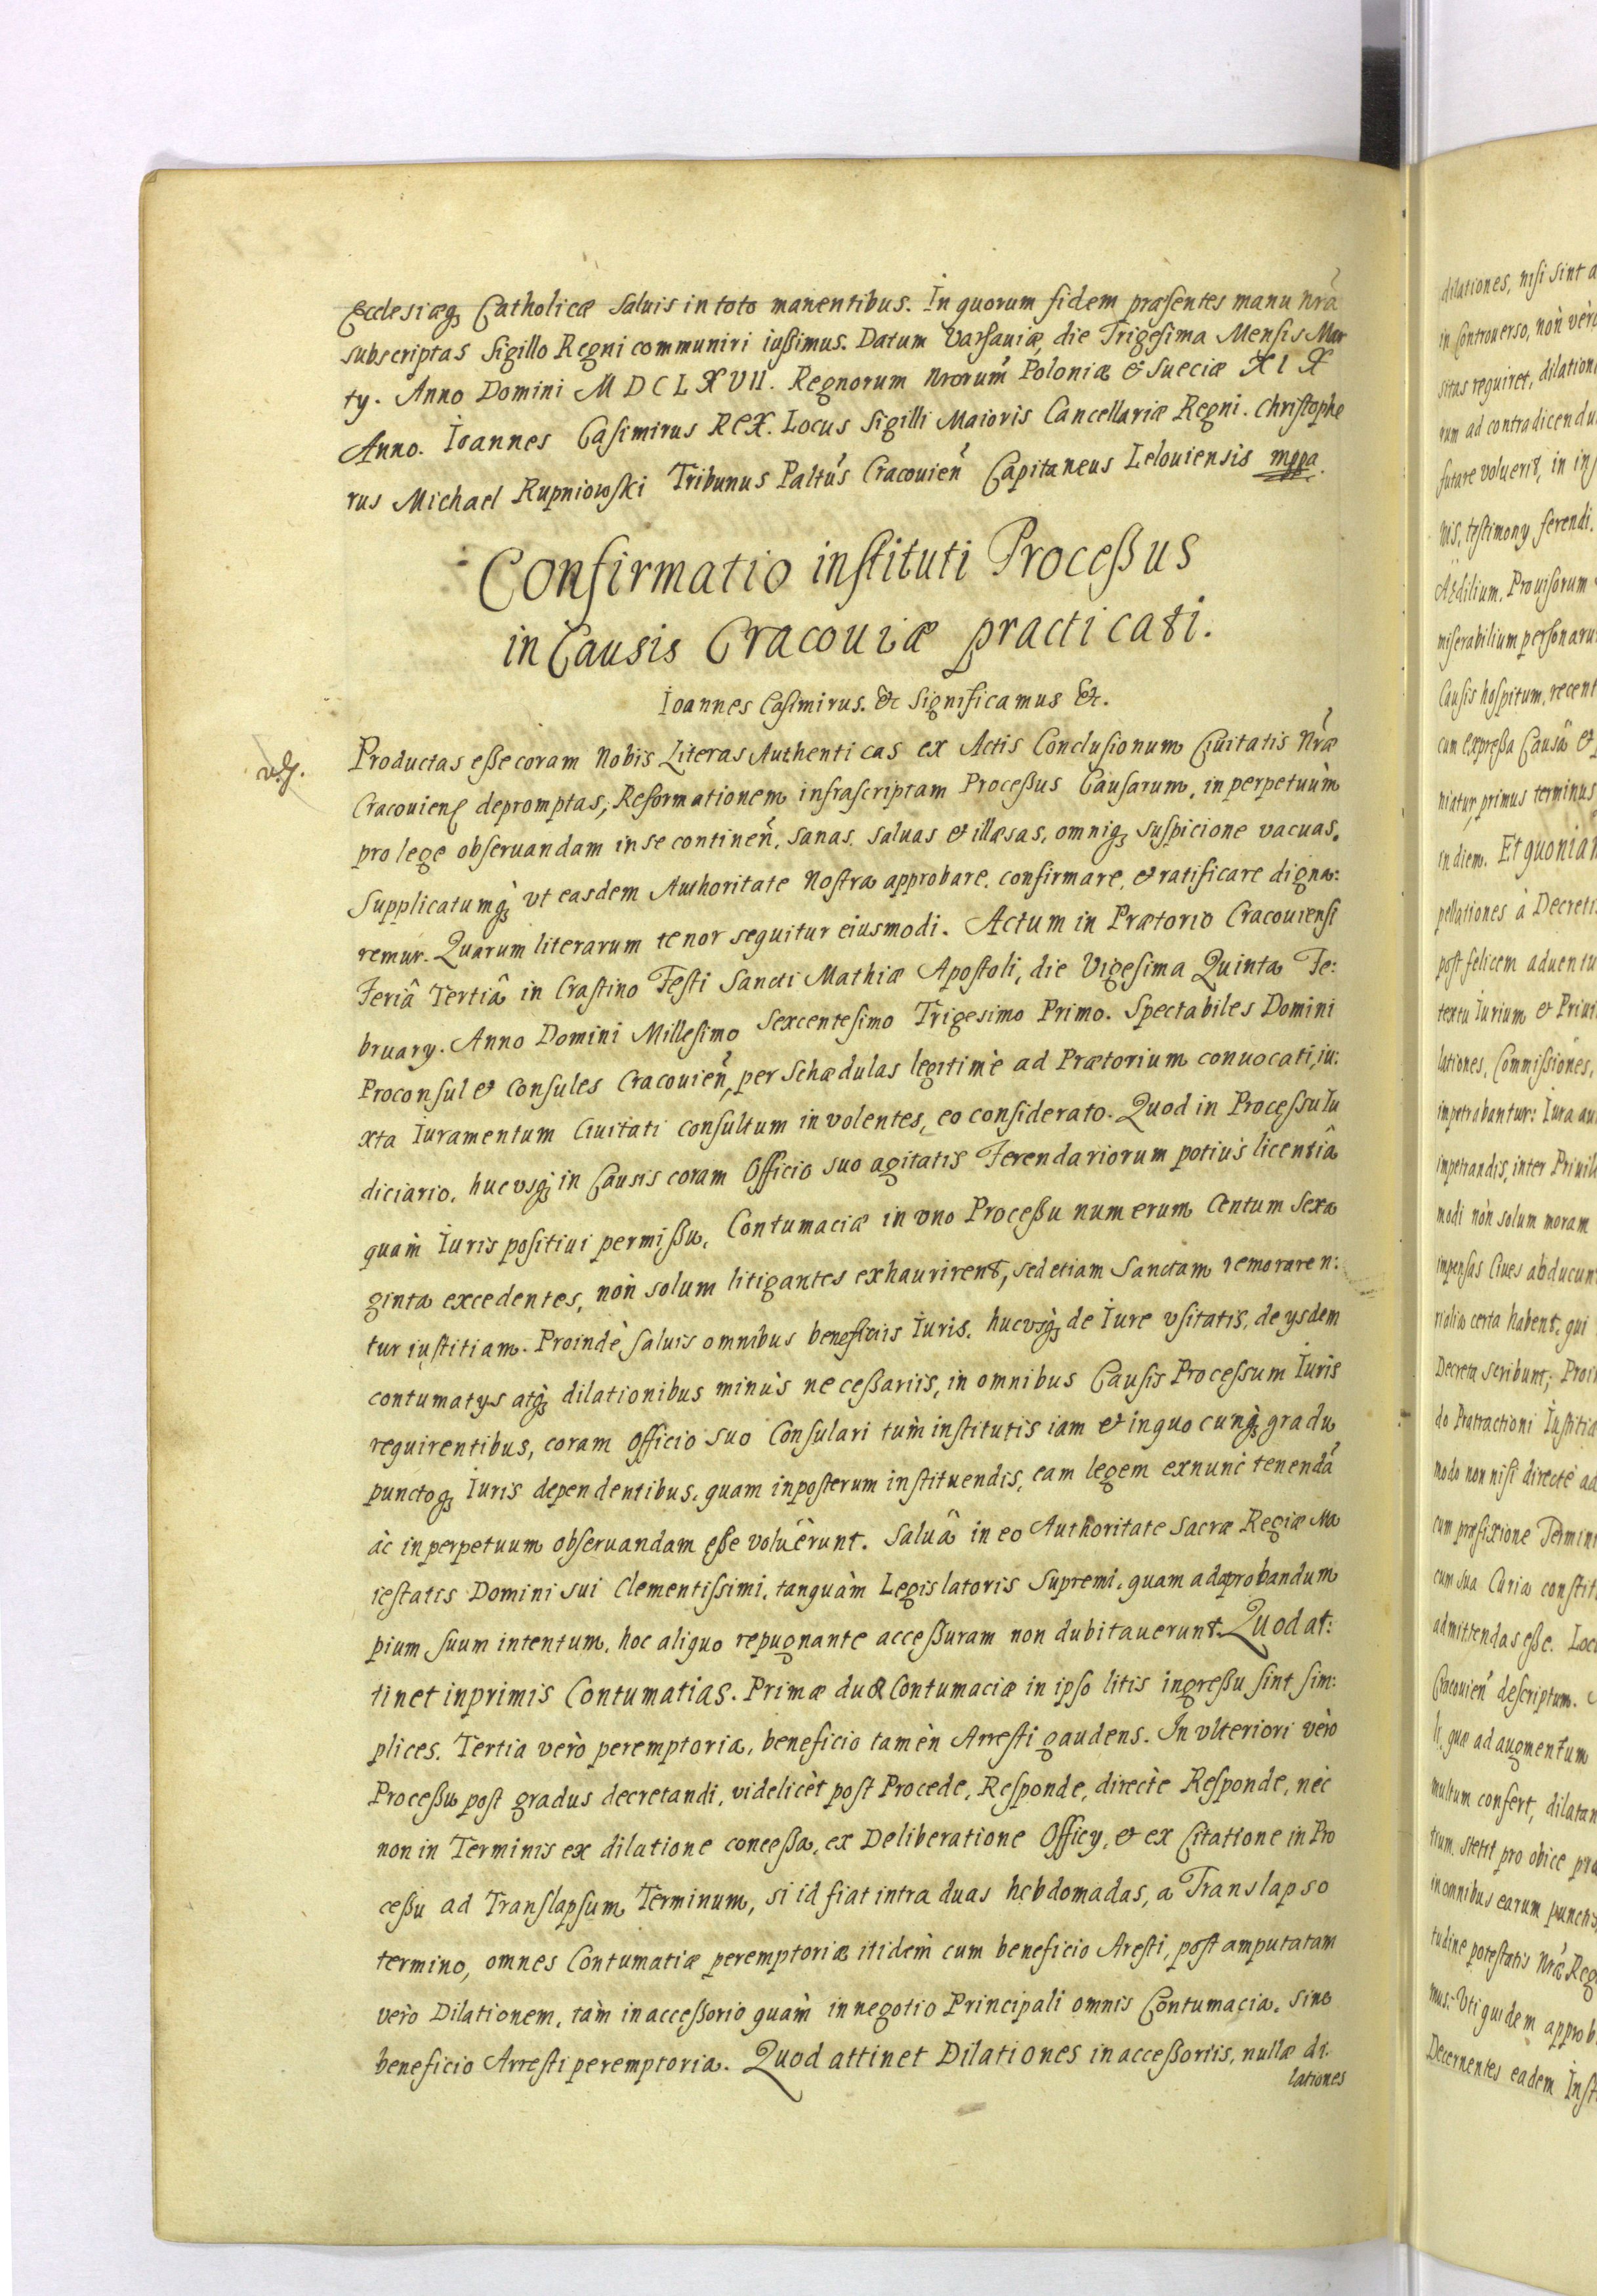 Ecclesiæq₃ Catholicæ saluis in toto manentibus. In quorum fidem præsentes manu nrã
subscriptas Sigillo Regni communiri iußimus. Datum Varsauiæ, die Trigesima Mensis Mar
ty. Anno Domini MDCLXVII. Regnorum nrorum̃ Poloniæ & Sueciæ XIX
Anno. Ioannes Casimirus Rex. Locus Sigilli Maioris Cancellariæ Regni. Christopho
rus Michael Rupniowski Tribunus Paltũs Cracouien̄ Capitaneus Lelouiensis mppa.
Confirmatio instituti Proceßus
in Causis Cracouiæ practicati.
Ioannes Casimirus. &c Significamus &c.
Productas eße coram Nobis Literas Authenticas ex Actis Conclusionum Ciuitatis Nræ̃
Cracouien̄ depromptas, Reformationem infrascriptam Proceßus Causarum, in perpetuùm
pro lege obseruandam in se continen̄, sanas, saluas et illæsas, omniq₃ suspicione vacuas.
Supplicatumq̀₃ vt easdem Authoritate Nostra approbare, confirmare, et ratificare digna:
remur. Quarum literarum tenor sequitur eiusmodi. Actum in Prætorio Cracouiensi
Feriâ Tertiâ in Crastino Festi Sancti Mathiæ Apostoli, die Vigesima Quinta Fe:
bruary. Anno Domini Millesimo Sexcentesimo Trigesimo Primo. Spectabiles Domini
Proconsul et Consules Cracouien̄, per Schædulas legitimè ad Prætorium conuocati, iu:
xta Iuramentum Ciuitati consultum in volentes, eo considerato. Quod in Processu Iu
diciario, hucvsq₃ in Causis coram Officio suo agitatis Ferendariorum potiùs licentiâ
quàm Iuris positiui permißu, Contumaciæ in vno Proceßu numerum Centum Sexa
ginta excedentes, nòn solum litigantes exhaurirent, sed etiam Sanctam remoraren:
tur iustitiam. Proindè saluis omnibus beneficiis Iuris, hucvsq̀₃ de Iure vsitatis, de ysdem
contumatys atq̀₃ dilationibus minùs neceßariis, in omnibus Causis Processum Iuris
requirentibus, coram Officio suo Consulari tùm institutis iam et in quocunq̀₃ gradu
punctoq₃ Iuris dependentibus, quam inposterum instituendis, eam legem exnunc tenendã
àc in perpetuum obseruandam eße voluèrunt. Saluâ in eo Authoritate Sacræ Regiæ Ma
iestatis Domini sui Clementissimi, tanquàm Legislatoris Supremi, quam ad aprobandum
pium suum intentum, hoc aliquo repugnante acceßuram non dubitauerunt. Quod at:
tinet inprimis Contumatias. Primæ duæ Contumaciæ in ipso litis ingreßu sint sim:
plices. Tertia verò peremptoria, beneficio tamèn Arresti gaudens. In vlteriori verò
Proceßu post gradus decretandi, videlicèt post Procede, Responde, directè Responde, nèc
non in Terminis ex dilatione conceßa, ex Deliberatione Officy, et ex Citatione in Pro
ceßu ad Translapsum Terminum, si id fiat intra duas hebdomadas, a Translapso
termino, omnes Contumatiæ peremptoriæ itidèm cum beneficio Aresti, post amputatam
verò Dilationem, tàm in acceßorio quàm in negotio Principali omnis Contumacia, sine
beneficio Arresti peremptoria. Quod attinet Dilationes in acceßoriis, nullæ di:
lationes
dilationes, nisi sint a
in Controuerso, nòn vèro
sitas requiret, dilation
rum ad contradicendu
futare voluerit, in in
testimony ferendi.
Ædilium, Prouisorum
miserabilium personaru
Causis hospitum, recent
cum expreßa Causâ et
niatur, primus terminus
in diem. Et quoniam
pellationes à Decreti
post felicem aduentu
textu Iurium et Priui
lationes, Commissiones,
impetrabantur: Iura au
impetrandis, inter Priuil
modi nòn solum moram
impensas Ciues abducun
rialia certa habent, qui
Decreta scribunt; Proin
do Protractioni Iustitiæ
modo non nisi directè ad
cum præfixione Termini
cum sua Curia constit
admittendas eße. Loc
Cracouien̄ descriptum.
li, quæ ad augmentum
multum confert, dilatan
tium, stetit pro obice pra
in omnibus earum punctis
tudine potestatis Nræ̃ Reg
mus: Vti quidem approb
Decernentes eadem Inst